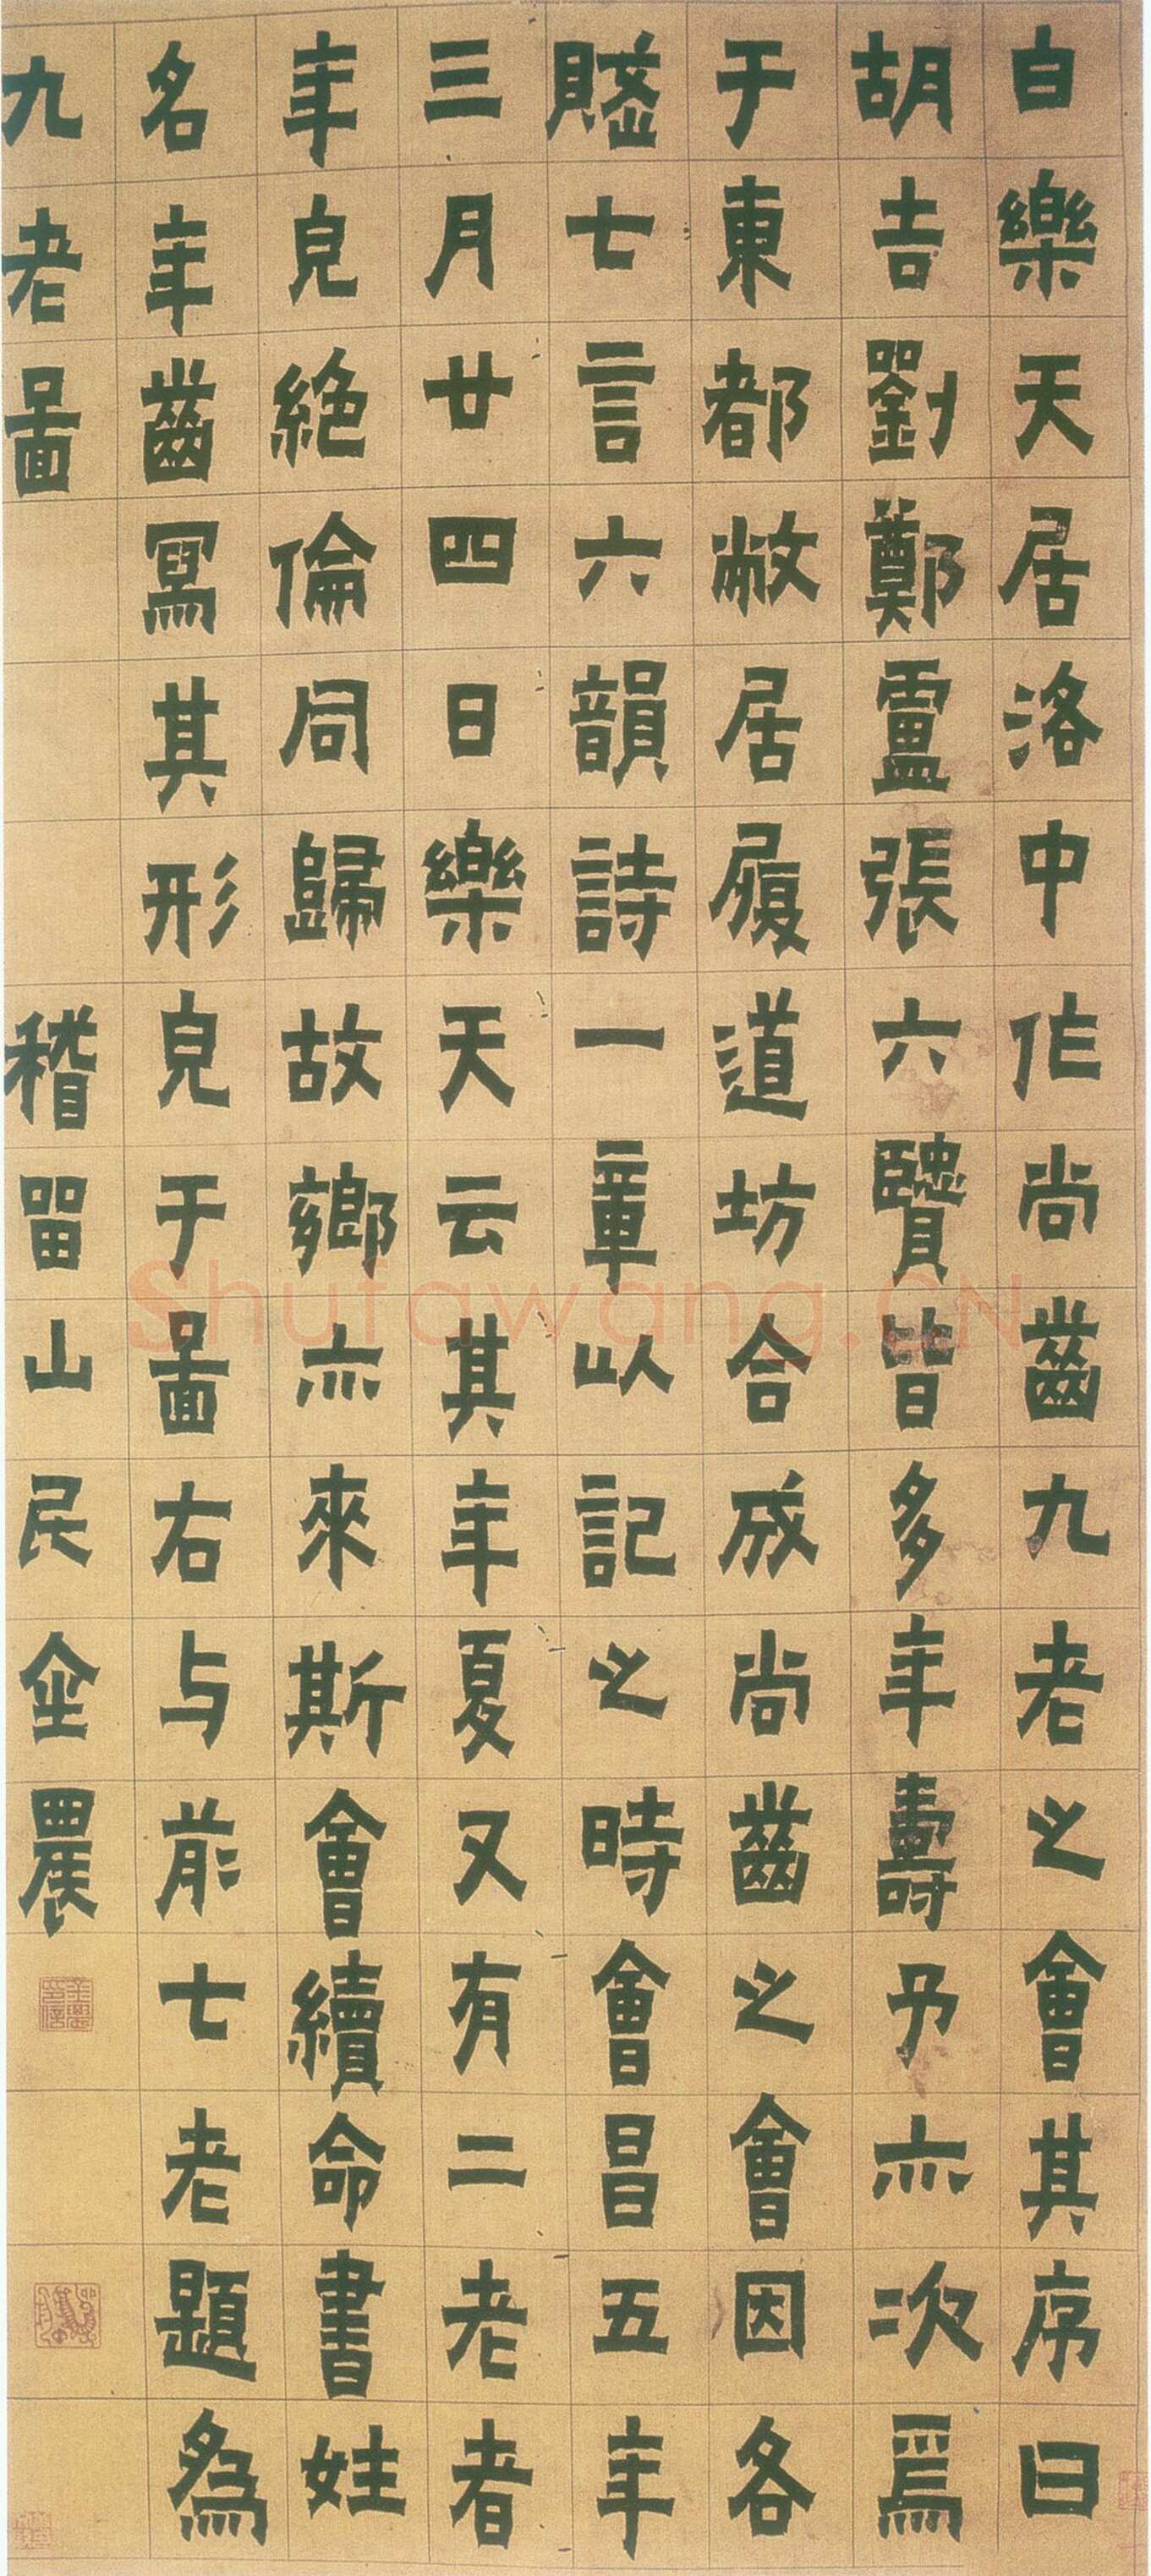 白樂天居洛中作尚齒九老之會其序曰
胡吉劉鄭盧張六賢皆多年壽予亦次焉
于東都敝居履道坊合成尚齒之會因各
賦七言六韻詩一章以記之時會昌五年
三月廿四日樂天云其年夏又有二老者
年皃絕倫同歸故鄉亦來斯會續命書姓
名年齒寫其形皃于圖右与前七老題為
九老圖
稽留山民金農
Shufawang.CN